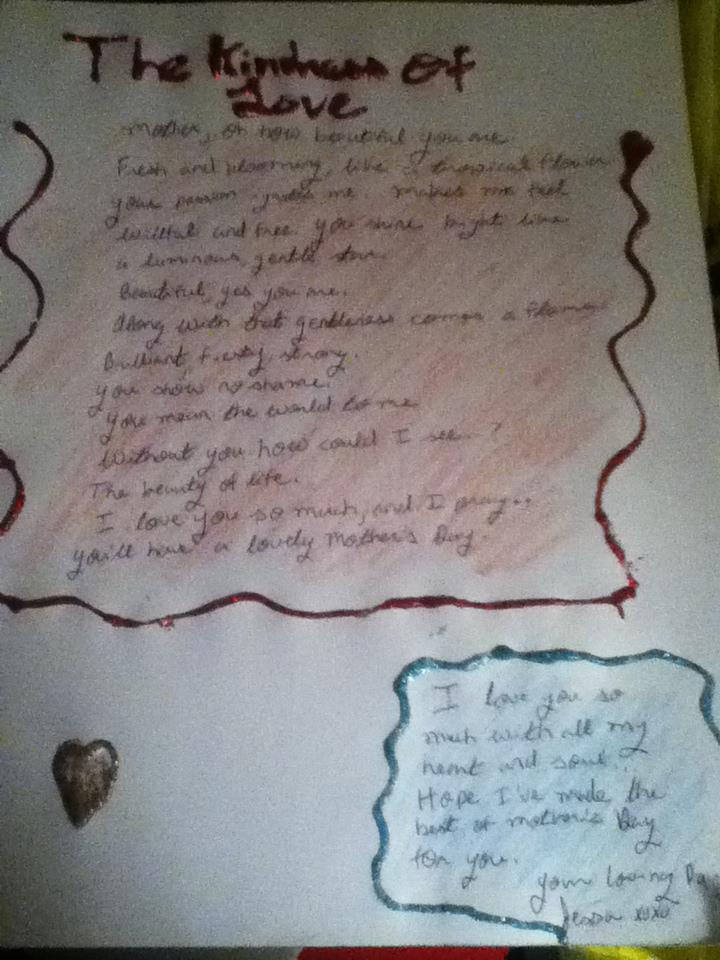 The Kindness of
Love
Mother, oh how beautiful you are
Fresh and blooming, like a tropical flower
your passion me. makes me feel
and free. you shine bright like
a luminous, gentle star.
Beautiful, yes you are.
Along with that gentleness comes a flame
Brilliant, fiesty, strong.
you show no shame.
you mean the world to me
Without you how could I see..?
The beauty of life.
I love you so much, and I pray..
you'll have a lovely Mother's Day.
I love you so
much with all my
heart and soul..
Hope I've made the
best of mother's Day
for you.
your loving Da
xoxo